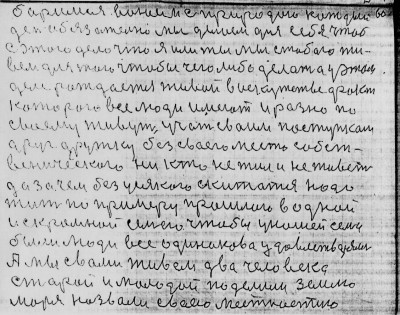 боримся воюем с природою каждый
ден обязательно мы делаем для себя чтоб
с этого дело что я или ты мы с тобою жи-
вем для того чтобы чего либо делат а у этом
деле рождается живой в искусстве факт
которого все люди имеют и разно по
своему живут, учат своим поступкам
друг дружку без своего место собст-
веннического никто не жил и не живет
да зачем без усякого скитатся надо
жит по примеру прошлого в одной
и скромной семье чтобы у нашей семи
были люди все одинакова удовлетворяли
А мы с вами живем два человека
старой и молодой поделили землю
моря назвали своею местностию